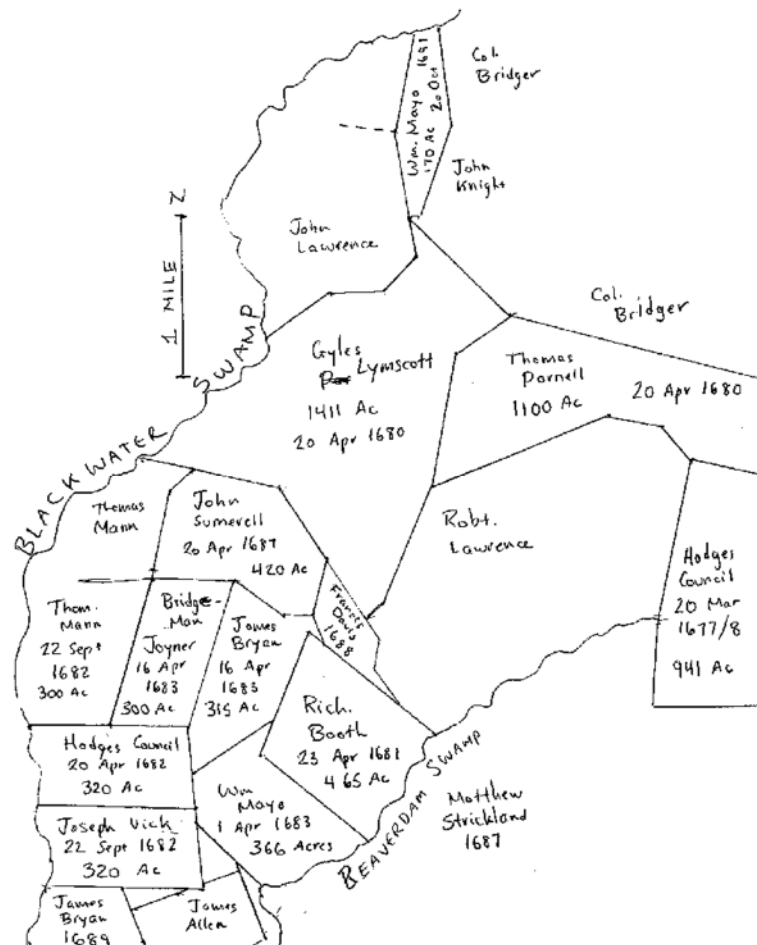 Col.
Bridger
Wm. Mayo 1681
170 Ac 20 Oct
John
Knight
N
1 MILE
John
Lawrence
Col.
Bridger
Gyles
Lymscott
1411 Ac
20 Apr 1680
Thomas
Parnell
1100 Ac
20 Apr 1680
BLACKWATER SWAMP
Thomas
Mann
John
Sumerell
20 Apr 1687
420 Ac
Robt.
Lawrence
Hodges
Council
20 Mar
1677/8
941 Ac
Thom.
Mann
22 Sept
1682
300 Ac
Bridge-
Man
Joyner
16 Apr
1683
300 Ac
James
Bryan
16 Apr
1683
315 Ac
Francis
Davis
1688
Rich.
Booth
23 Apr 1681
465 Ac
Hodges Council
20 Apr 1682
320 Ac
Wm
Mayo
1 Apr 1683
366 Acres
BEAVERDAM SWAMP
Matthew
Strickland
1687
Joseph Vick
22 Sept 1682
320 Ac
James
Bryan
1689
James
Allen